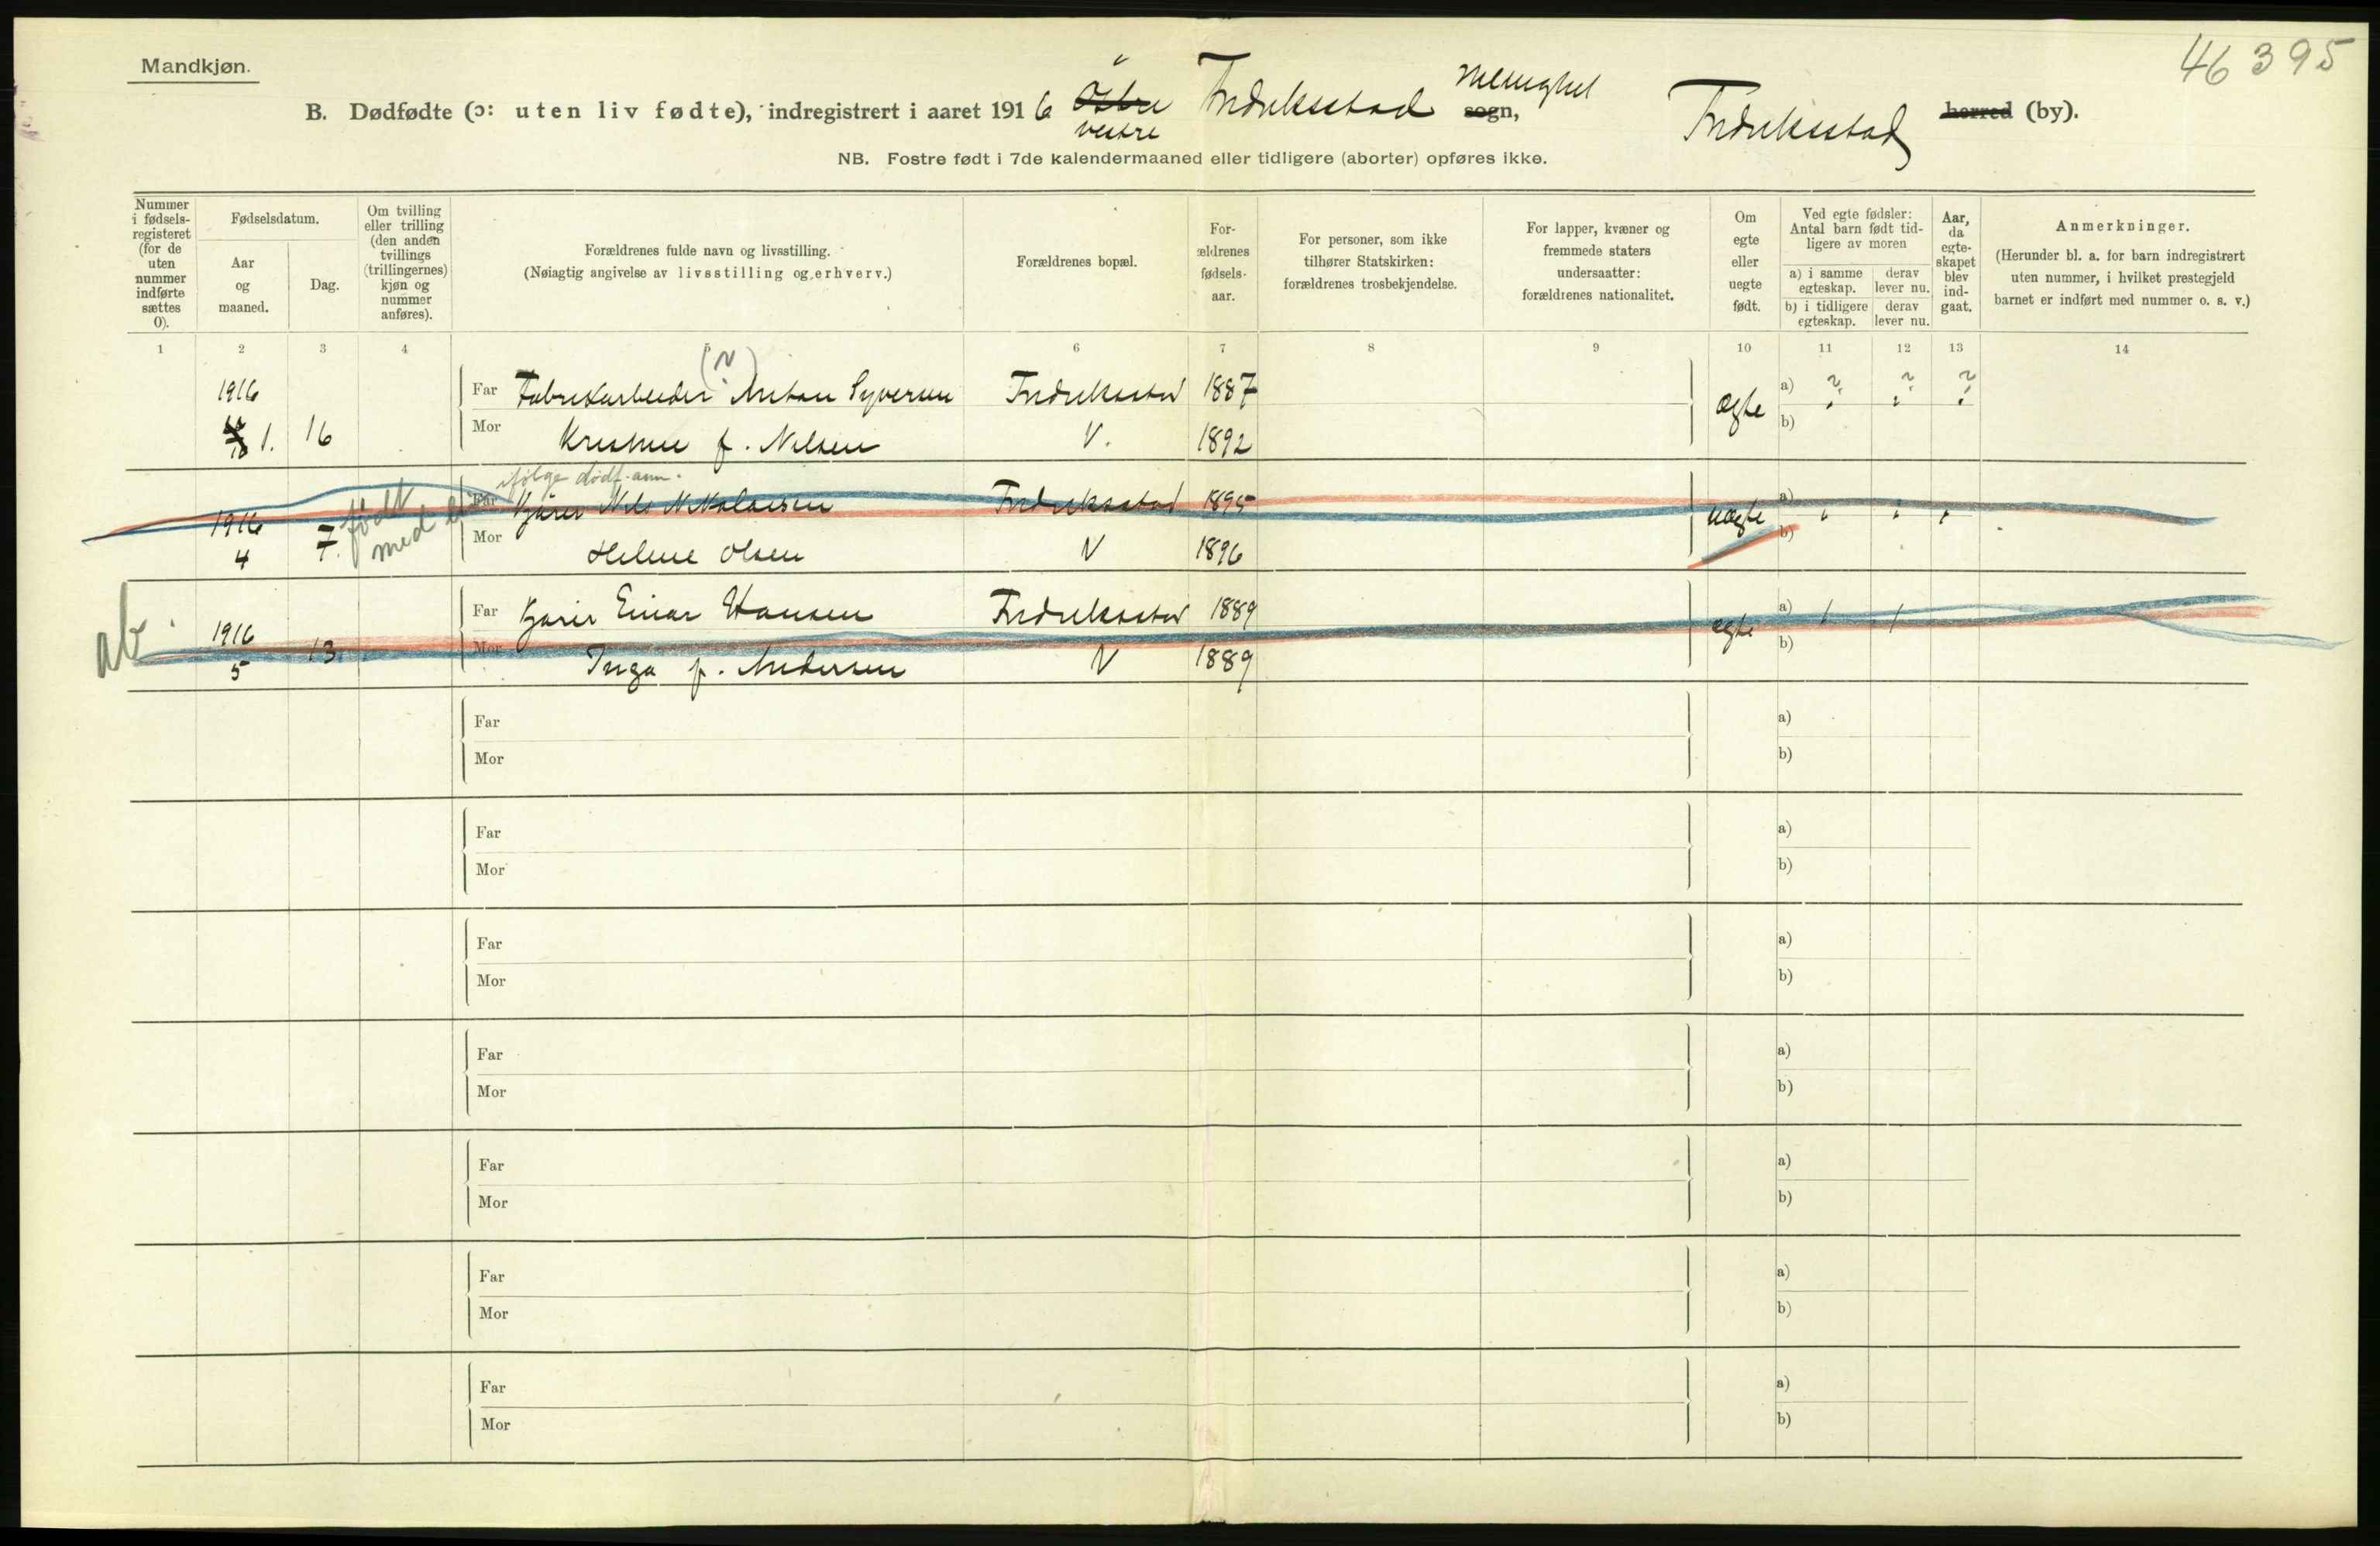 Mandkjøn.
46395
B. Dødfødte (ɔ: uten liv fødte), indregistrert i aaret 1916 Østre Fredriksstad Menighet sogn, Fredriksstad herred (by).
vestre
NB. Fostre født i 7de kalendermaaned eller tidligere (aborter) opføres ikke.
Nummer i fødsels-registeret (for de uten nummer indførte sættes 0).
Fødselsdatum.
Aar og maaned.
Dag.
Om tvilling eller trilling (den anden tvillings (trillingernes) kjøn og nummer anføres).
Forældrenes fulde navn og livsstilling.
(Nøiagtig angivelse av livsstilling og erhverv.)
Forældrenes bopæl.
For-ældrenes fødsels-aar.
For personer, som ikke tilhører Statskirken: forældrenes trosbekjendelse.
For lapper, kvæner og fremmede staters undersaatter: forældrenes nationalitet.
Om egte eller uegte født.
Ved egte fødsler: Antal barn født tid-ligere av moren
a) i samme egteskap. derav lever nu.
b) i tidligere egteskap. derav lever nu.
Aar, da egte-skapet blev ind-gaat.
Anmerkninger.
(Herunder bl. a. for barn indregistrert uten nummer, i hvilket prestegjeld barnet er indført med nummer o. s. v.)
1 2 3 4 5 6 7 8 9 10 11 12 13 14
(N)
1916 Far Fabrikarbeider Anton Syversen Fredriksstad 1887 ægte a) ? ? ?
1. 16 Mor Kristine f. Nilsen V. 1892 b)
ifølge dødf. anm.
født med liv
1916 7 Far Kjører Nils Nikolaisen Fredriksstad 1895 uægte a)
4 7. Mor Helene Olsen V 1896 b)
ab.
1916 13. Far Kjører Einar Hansen Fredriksstad 1889 ægte a) 1 1
5 Mor Inga f. Andersen V 1889 b)
Far a)
Mor b)
Far a)
Mor b)
Far a)
Mor b)
Far a)
Mor b)
Far a)
Mor b)
Far a)
Mor b)
Far a)
Mor b)